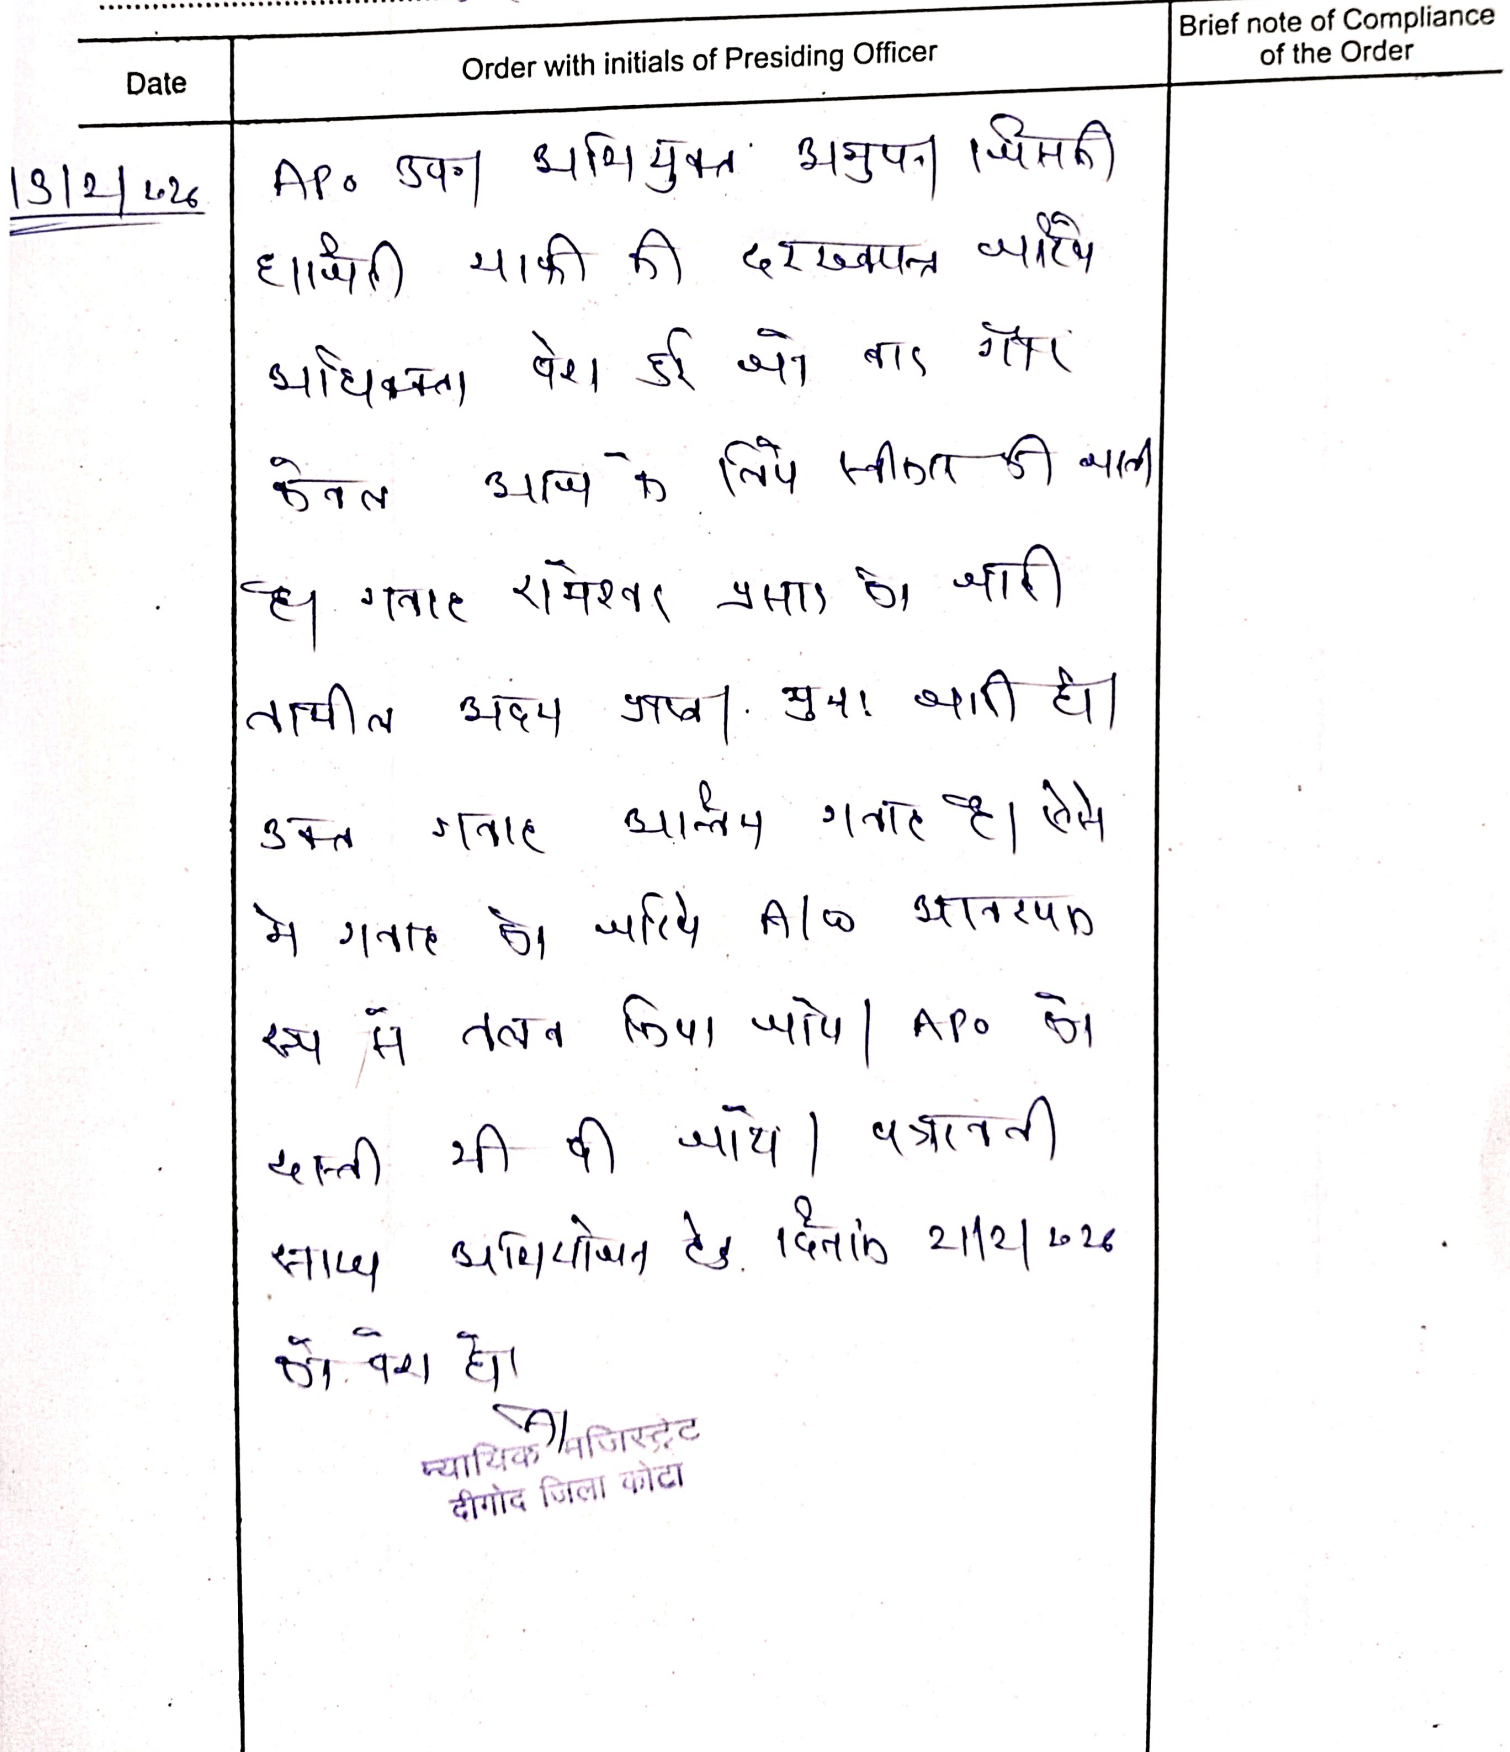 Date
Order with initials of Presiding Officer
Brief note of Compliance
of the Order
19/2/2026
APO उप० अभियुक्त अनुप० जिसकी
हाजिरी माफी की दरख्वास्त जरिये
अधिवक्ता पेश हुई जो बाद गौर
केवल आज के लिये स्वीकार की जाती
है। गवाह रामेश्वर प्रसाद को जारी
तामील अदम प्राप्त। पुनः जारी हो।
उक्त गवाह अन्तिम गवाह है। ऐसे
मे गवाह को जरिये A/W आवश्यक
रूप से तलब किया जाये। APO को
दस्ती भी दी जाये। पत्रावली
साक्ष्य अभियोजन हेतु दिनांक 21/2/2026
को पेश हो।
न्यायिक मजिस्ट्रेट
दीगोद जिला कोटा